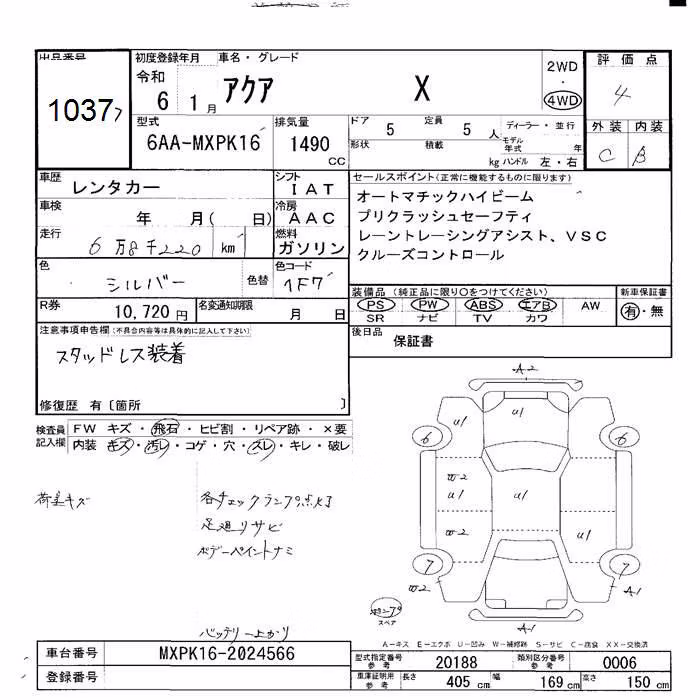 出品番号 初度登録年月 車名・グレード 評価点
1037
令和 6 1月 アクア X 2WD ・ 4WD 4
型式 6AA-MXPK16 排気量 1490 CC
ドア 5 定員 5 人 ディーラー・並行
形状 積載 kg モデル年式 年 ハンドル 左・右
外装 内装
C B
車歴 レンタカー シフト IAT
車検 年 月( 日) 冷房 AAC
走行 6万8千220 km 燃料 ガソリン
色 シルバー 色替 色コード 1F7
R券 10,720円 名変通知期限 月 日
セールスポイント(正常に機能するものに限ります)
オートマチックハイビーム
プリクラッシュセーフティ
レーントレーシングアシスト、VSC
クルーズコントロール
装備品(純正品に限り○をつけてください) 新車保証書
PS PW ABS エアB AW 有・無
SR ナビ TV カワ
後日品 保証書
注意事項申告欄(不具合内容等は具体的に記入して下さい)
スタッドレス装着
修復歴 有〔箇所 〕
検査員記入欄 FW キズ・飛石・ヒビ割・リペア跡・×要
内装 キズ・汚レ・コゲ・穴・スレ・キレ・破レ
荷室キズ
各チェックランプ点灯
足廻リサビ
ボデーペイントナミ
バッテリー上がり
A2
U1 U1
6 6
W2
U1 U1 U1
W2 U1
7 7
W2 A1
スペア
A1
A-キズ E-エクボ U-凹み W-補修跡 S-サビ C-腐食 XX-交換済
車台番号 MXPK16-2024566
登録番号
型式指定番号 参考 20188 類別区分番号 参考 0006
車庫証明用 参考 長さ 405 cm 幅 169 cm 高さ 150 cm